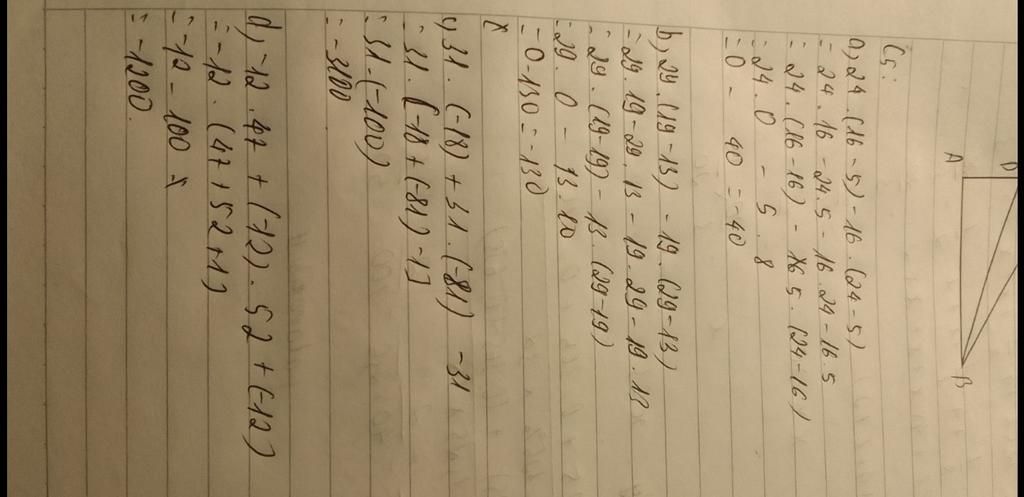 D
A
B
C5:
a, 24 . (16 - 5) - 16 . (24 - 5)
= 24 . 16 - 24 . 5 - 16 . 24 - 16 5
= 24 . (16 - 16) - 16 5 . (24 - 16)
= 24 . 0 - 5 . 8
= 0 - 40 = -40
b, 29 . (19 - 13) - 19 . (29 - 13)
= 29 . 19 - 29 . 13 - 19 . 29 - 19 . 13
= 29 . (19 - 19) - 13 . (29 - 19)
= 29 . 0 - 13 . 10
= 0 - 130 = -130
c, 31 . (-18) + 31 . (-81) - 31
= 31 . [-18 + (-81) - 1]
= 31 . (-100)
= -3100
d, -12 . 47 + (-12) . 52 + (-12)
= -12 . (47 + 52 + 1)
= -12 - 100 =
= -1200.